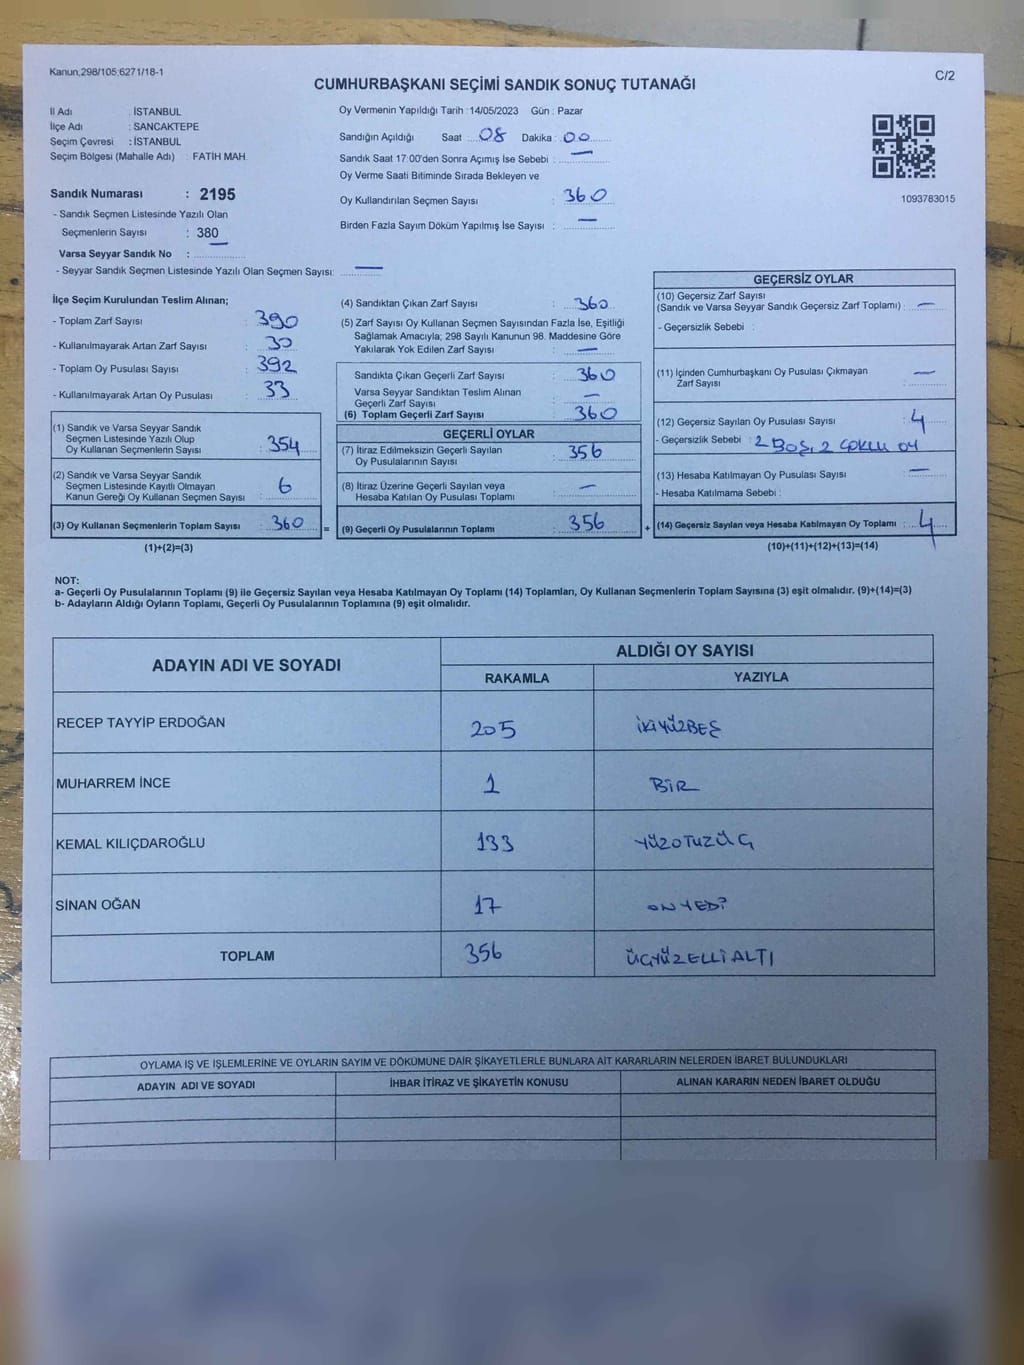 Kanun,298/105;6271/18-1
C/2
CUMHURBAŞKANI SEÇİMİ SANDIK SONUÇ TUTANAĞI
İl Adı : İSTANBUL
İlçe Adı : SANCAKTEPE
Seçim Çevresi : İSTANBUL
Seçim Bölgesi (Mahalle Adı) : FATİH MAH.
Sandık Numarası : 2195
- Sandık Seçmen Listesinde Yazılı Olan
Seçmenlerin Sayısı : 380
Varsa Seyyar Sandık No :
- Seyyar Sandık Seçmen Listesinde Yazılı Olan Seçmen Sayısı: —
Oy Vermenin Yapıldığı Tarih :14/05/2023 Gün : Pazar
Sandığın Açıldığı Saat : 08 Dakika : 00
Sandık Saat 17:00'den Sonra Açımış İse Sebebi : —
Oy Verme Saati Bitiminde Sırada Bekleyen ve
Oy Kullandırılan Seçmen Sayısı : 360
Birden Fazla Sayım Döküm Yapılmış İse Sayısı : —
1093783015
İlçe Seçim Kurulundan Teslim Alınan;
- Toplam Zarf Sayısı : 390
- Kullanılmayarak Artan Zarf Sayısı : 30
- Toplam Oy Pusulası Sayısı : 392
- Kullanılmayarak Artan Oy Pusulası : 33
(1) Sandık ve Varsa Seyyar Sandık
Seçmen Listesinde Yazılı Olup
Oy Kullanan Seçmenlerin Sayısı : 354
(2) Sandık ve Varsa Seyyar Sandık
Seçmen Listesinde Kayıtlı Olmayan
Kanun Gereği Oy Kullanan Seçmen Sayısı : 6
(3) Oy Kullanan Seçmenlerin Toplam Sayısı : 360 =
(1)+(2)=(3)
(4) Sandıktan Çıkan Zarf Sayısı : 360
(5) Zarf Sayısı Oy Kullanan Seçmen Sayısından Fazla İse, Eşitliği
Sağlamak Amacıyla; 298 Sayılı Kanunun 98. Maddesine Göre
Yakılarak Yok Edilen Zarf Sayısı : —
Sandıkta Çıkan Geçerli Zarf Sayısı : 360
Varsa Seyyar Sandıktan Teslim Alınan
Geçerli Zarf Sayısı : —
(6) Toplam Geçerli Zarf Sayısı : 360
GEÇERLİ OYLAR
(7) İtiraz Edilmeksizin Geçerli Sayılan
Oy Pusulalarının Sayısı : 356
(8) İtiraz Üzerine Geçerli Sayılan veya
Hesaba Katılan Oy Pusulası Toplamı : —
(9) Geçerli Oy Pusulalarının Toplamı : 356 +
GEÇERSİZ OYLAR
(10) Geçersiz Zarf Sayısı
(Sandık ve Varsa Seyyar Sandık Geçersiz Zarf Toplamı) : —
- Geçersizlik Sebebi :
(11) İçinden Cumhurbaşkanı Oy Pusulası Çıkmayan
Zarf Sayısı : —
(12) Geçersiz Sayılan Oy Pusulası Sayısı : 4
- Geçersizlik Sebebi : 2 BOŞ, 2 ÇOKLU OY
(13) Hesaba Katılmayan Oy Pusulası Sayısı : —
- Hesaba Katılmama Sebebi :
(14) Geçersiz Sayılan veya Hesaba Katılmayan Oy Toplamı : 4
(10)+(11)+(12)+(13)=(14)
NOT:
a- Geçerli Oy Pusulalarının Toplamı (9) ile Geçersiz Sayılan veya Hesaba Katılmayan Oy Toplamı (14) Toplamları, Oy Kullanan Seçmenlerin Toplam Sayısına (3) eşit olmalıdır. (9)+(14)=(3)
b- Adayların Aldığı Oyların Toplamı, Geçerli Oy Pusulalarının Toplamına (9) eşit olmalıdır.
ADAYIN ADI VE SOYADI
ALDIĞI OY SAYISI
RAKAMLA YAZIYLA
RECEP TAYYİP ERDOĞAN 205 İKİYÜZBEŞ
MUHARREM İNCE 1 BİR
KEMAL KILIÇDAROĞLU 133 YÜZOTUZÜÇ
SİNAN OĞAN 17 ONYEDİ
TOPLAM 356 ÜÇYÜZELLİALTI
OYLAMA İŞ VE İŞLEMLERİNE VE OYLARIN SAYIM VE DÖKÜMÜNE DAİR ŞİKAYETLERLE BUNLARA AİT KARARLARIN NELERDEN İBARET BULUNDUKLARI
ADAYIN ADI VE SOYADI İHBAR İTİRAZ VE ŞİKAYETİN KONUSU ALINAN KARARIN NEDEN İBARET OLDUĞU